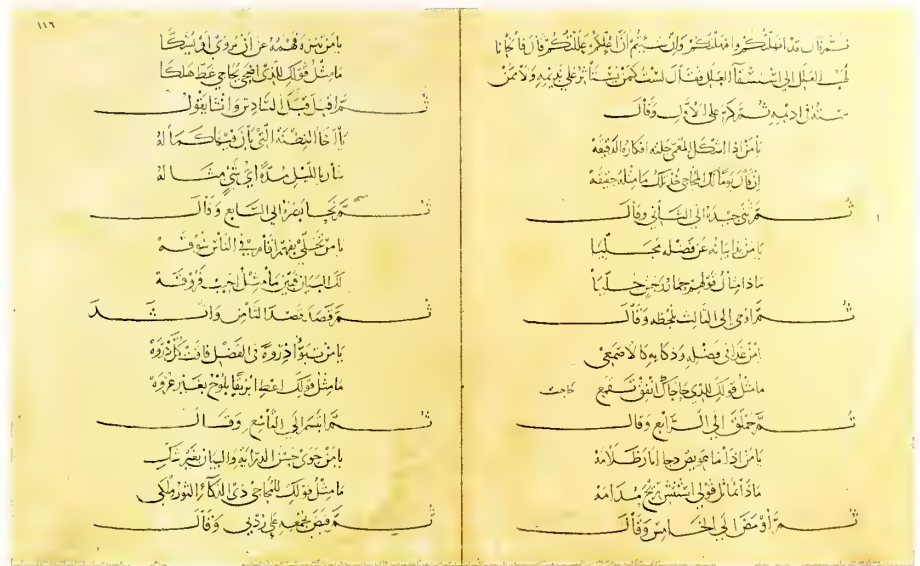 ثم قال قد انهلتكم وامهلتكم وان شئتم ان اعلكم عللتكم قال فالجانا
لهب الغلل الى استسقآ العلل فقال لست كمن يستأثر على نديمه ولا ممن
سمنه في اديمه ثم كر على الاول وقال
يا من اذا اشكل المعمى جلته افكاره الدقيقه
ان قال يوما لك المحاجي خذ تلك ما مثله حقيقه
ثم ثنى جيده الى الثاني وقال
يا من بدا بيانه عن فضله
ماذا مثال قولهم حمار وحش
ثم اوحى الى الثالث بلحظه وقال
يا من غدا في فضله وذكايه كالاصمعي
ما مثل قولك للذي حاجاك انفق تقمع
ثم حملق الى الرابع وقال
يا من اذا ما عويص دجا انار ظلامه
ماذا يماثل قولي استنش ريح مدامه
ثم اومض الى الخامس وقال
١١٦
يا من تنزه فهمه عن ان يروي او يشكا
ما مثل قولك للذي اضحى يحاجي غط هلكا
ثم اقبل قبل السادس وانشا يقول
يا اخا الفطنة التي بان فيها كماله
سار بالليل مدة اي شي مثاله
ثم نحا بصره الى السابع وقال
يا من تحلى بفهم اقام في الناس سوقه
لك البيان فبين ما مثل احبب فروقه
ثم قصد قصد الثامن وانشد
يا من تبوأ ذروة في الفضل فاقت كل ذروه
ما مثل قولك اعط ابريقا يلوح بغير عروه
ثم ابتسم الى التاسع وقال
يا من حوى حسن الدراية والبيان بغير شك
ما مثل قولك للمحاجي ذي الذكاء الثور ملكي
ثم قبض بجمعه على ردني وقال